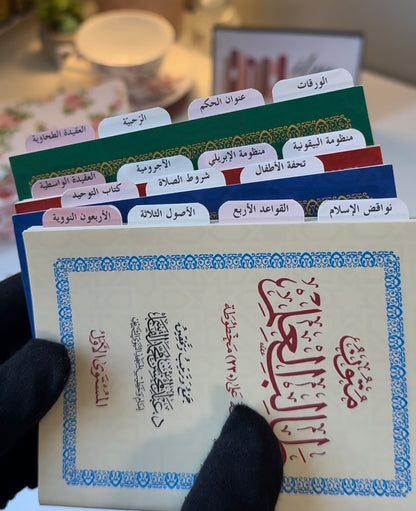 الورقات
عنوان الحكم
الرّحبيّة
العقيدة الطحاوية
منظومة البيقونية
منظومة الإلبيري
الآجرومية
العقيدة الواسطية
تحفة الأطفال
شروط الصلاة
كتاب التوحيد
نواقض الإسلام
القواعد الأربع
الأصول الثلاثة
الأربعون النووية
متون
طالب العلم
المستوى الأول